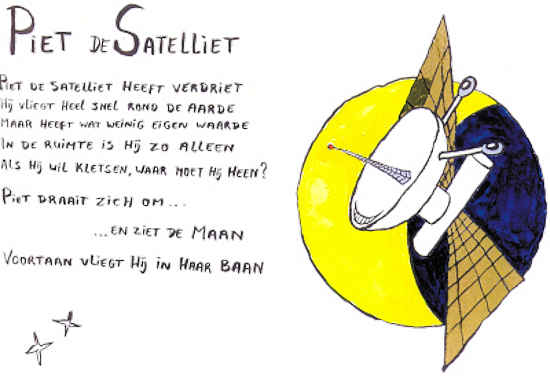 Piet de Satelliet
Piet de Satelliet heeft verdriet
Hij vliegt heel snel rond de aarde
Maar heeft wat weinig eigen waarde
In de ruimte is hij zo alleen
Als hij wil kletsen, waar moet hij heen?
Piet draait zich om...
...en ziet de Maan
Voortaan vliegt hij in haar baan